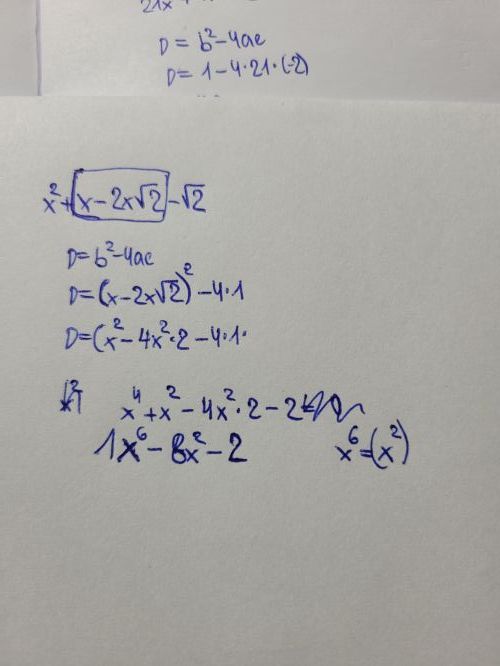 21x
D = b² – 4ac
D = 1 – 4·21·(-2)
x² + x – 2x√2 – √2
D = b² – 4ac
D = (x – 2x√2)² – 4·1
D = (x² – 4x²·2 – 4·1·
x⁴ + x² – 4x²·2 – 2
1x⁶ – 8x² – 2 x⁶ = (x²)